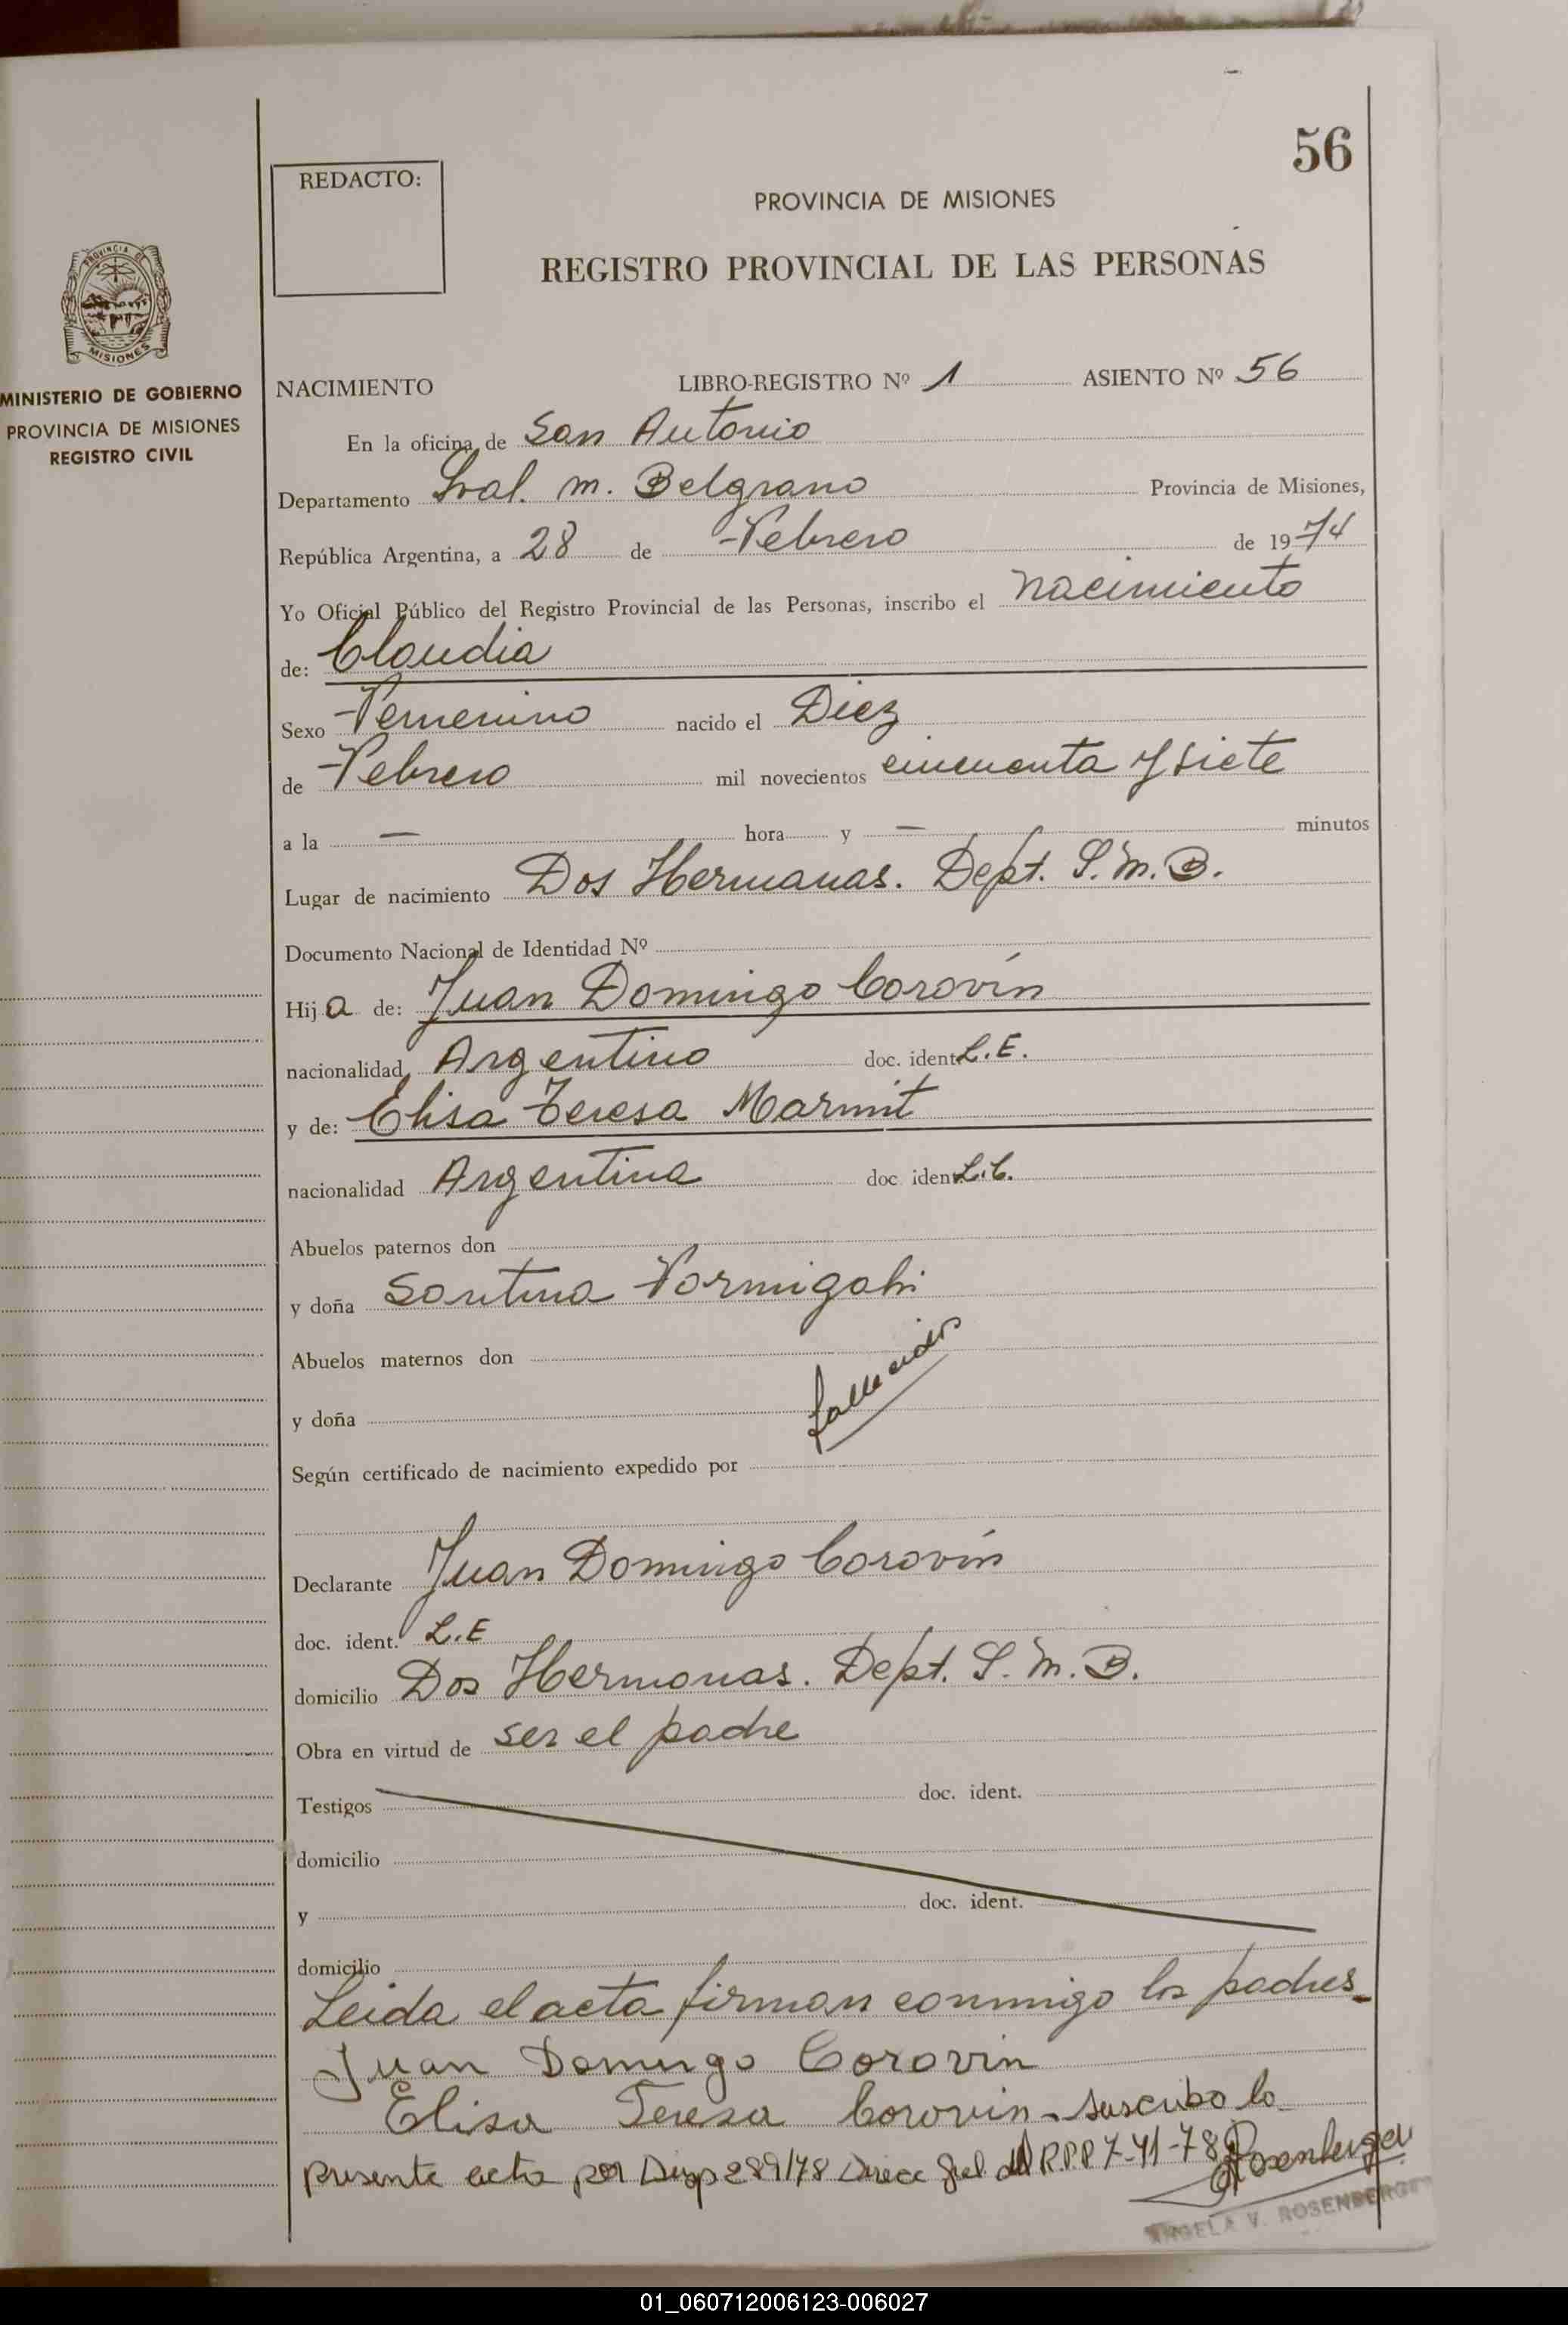 56
REDACTO:
PROVINCIA DE MISIONES
REGISTRO PROVINCIAL DE LAS PERSONAS
PROVINCIA DE
MISIONES
MINISTERIO DE GOBIERNO
PROVINCIA DE MISIONES
REGISTRO CIVIL
NACIMIENTO LIBRO-REGISTRO Nº 1 ASIENTO Nº 56
En la oficina de San Antonio
Departamento Gral. M. Belgrano Provincia de Misiones,
República Argentina, a 28 de Febrero de 1974
Yo Oficial Público del Registro Provincial de las Personas, inscribo el nacimiento
de: Claudia
Sexo Femenino nacido el Diez
de Febrero mil novecientos cincuenta y siete
a la — hora y — minutos
Lugar de nacimiento Dos Hermanas. Dept. G. M. B.
Documento Nacional de Identidad Nº
Hija de: Juan Domingo Corovín
nacionalidad Argentino doc. ident. L.E.
y de: Elisa Teresa Marmit
nacionalidad Argentina doc iden L.C.
Abuelos paternos don
y doña Santina Formigahi
Abuelos maternos don
y doña
fallecidos
Según certificado de nacimiento expedido por
Declarante Juan Domingo Corovín
doc. ident. L.E
domicilio Dos Hermanas. Dept. G. M. B.
Obra en virtud de ser el padre
Testigos doc. ident.
domicilio
y doc. ident.
domicilio
Leida el acta firman conmigo los padres
Juan Domingo Corovin
Elisa Teresa Corovin - suscribo la
presente acta por Disp 289/78 Direcc Gral del R.P.P 7-11-78 Rosenberger
ANGELA V. ROSENBERGER
01_060712006123-006027